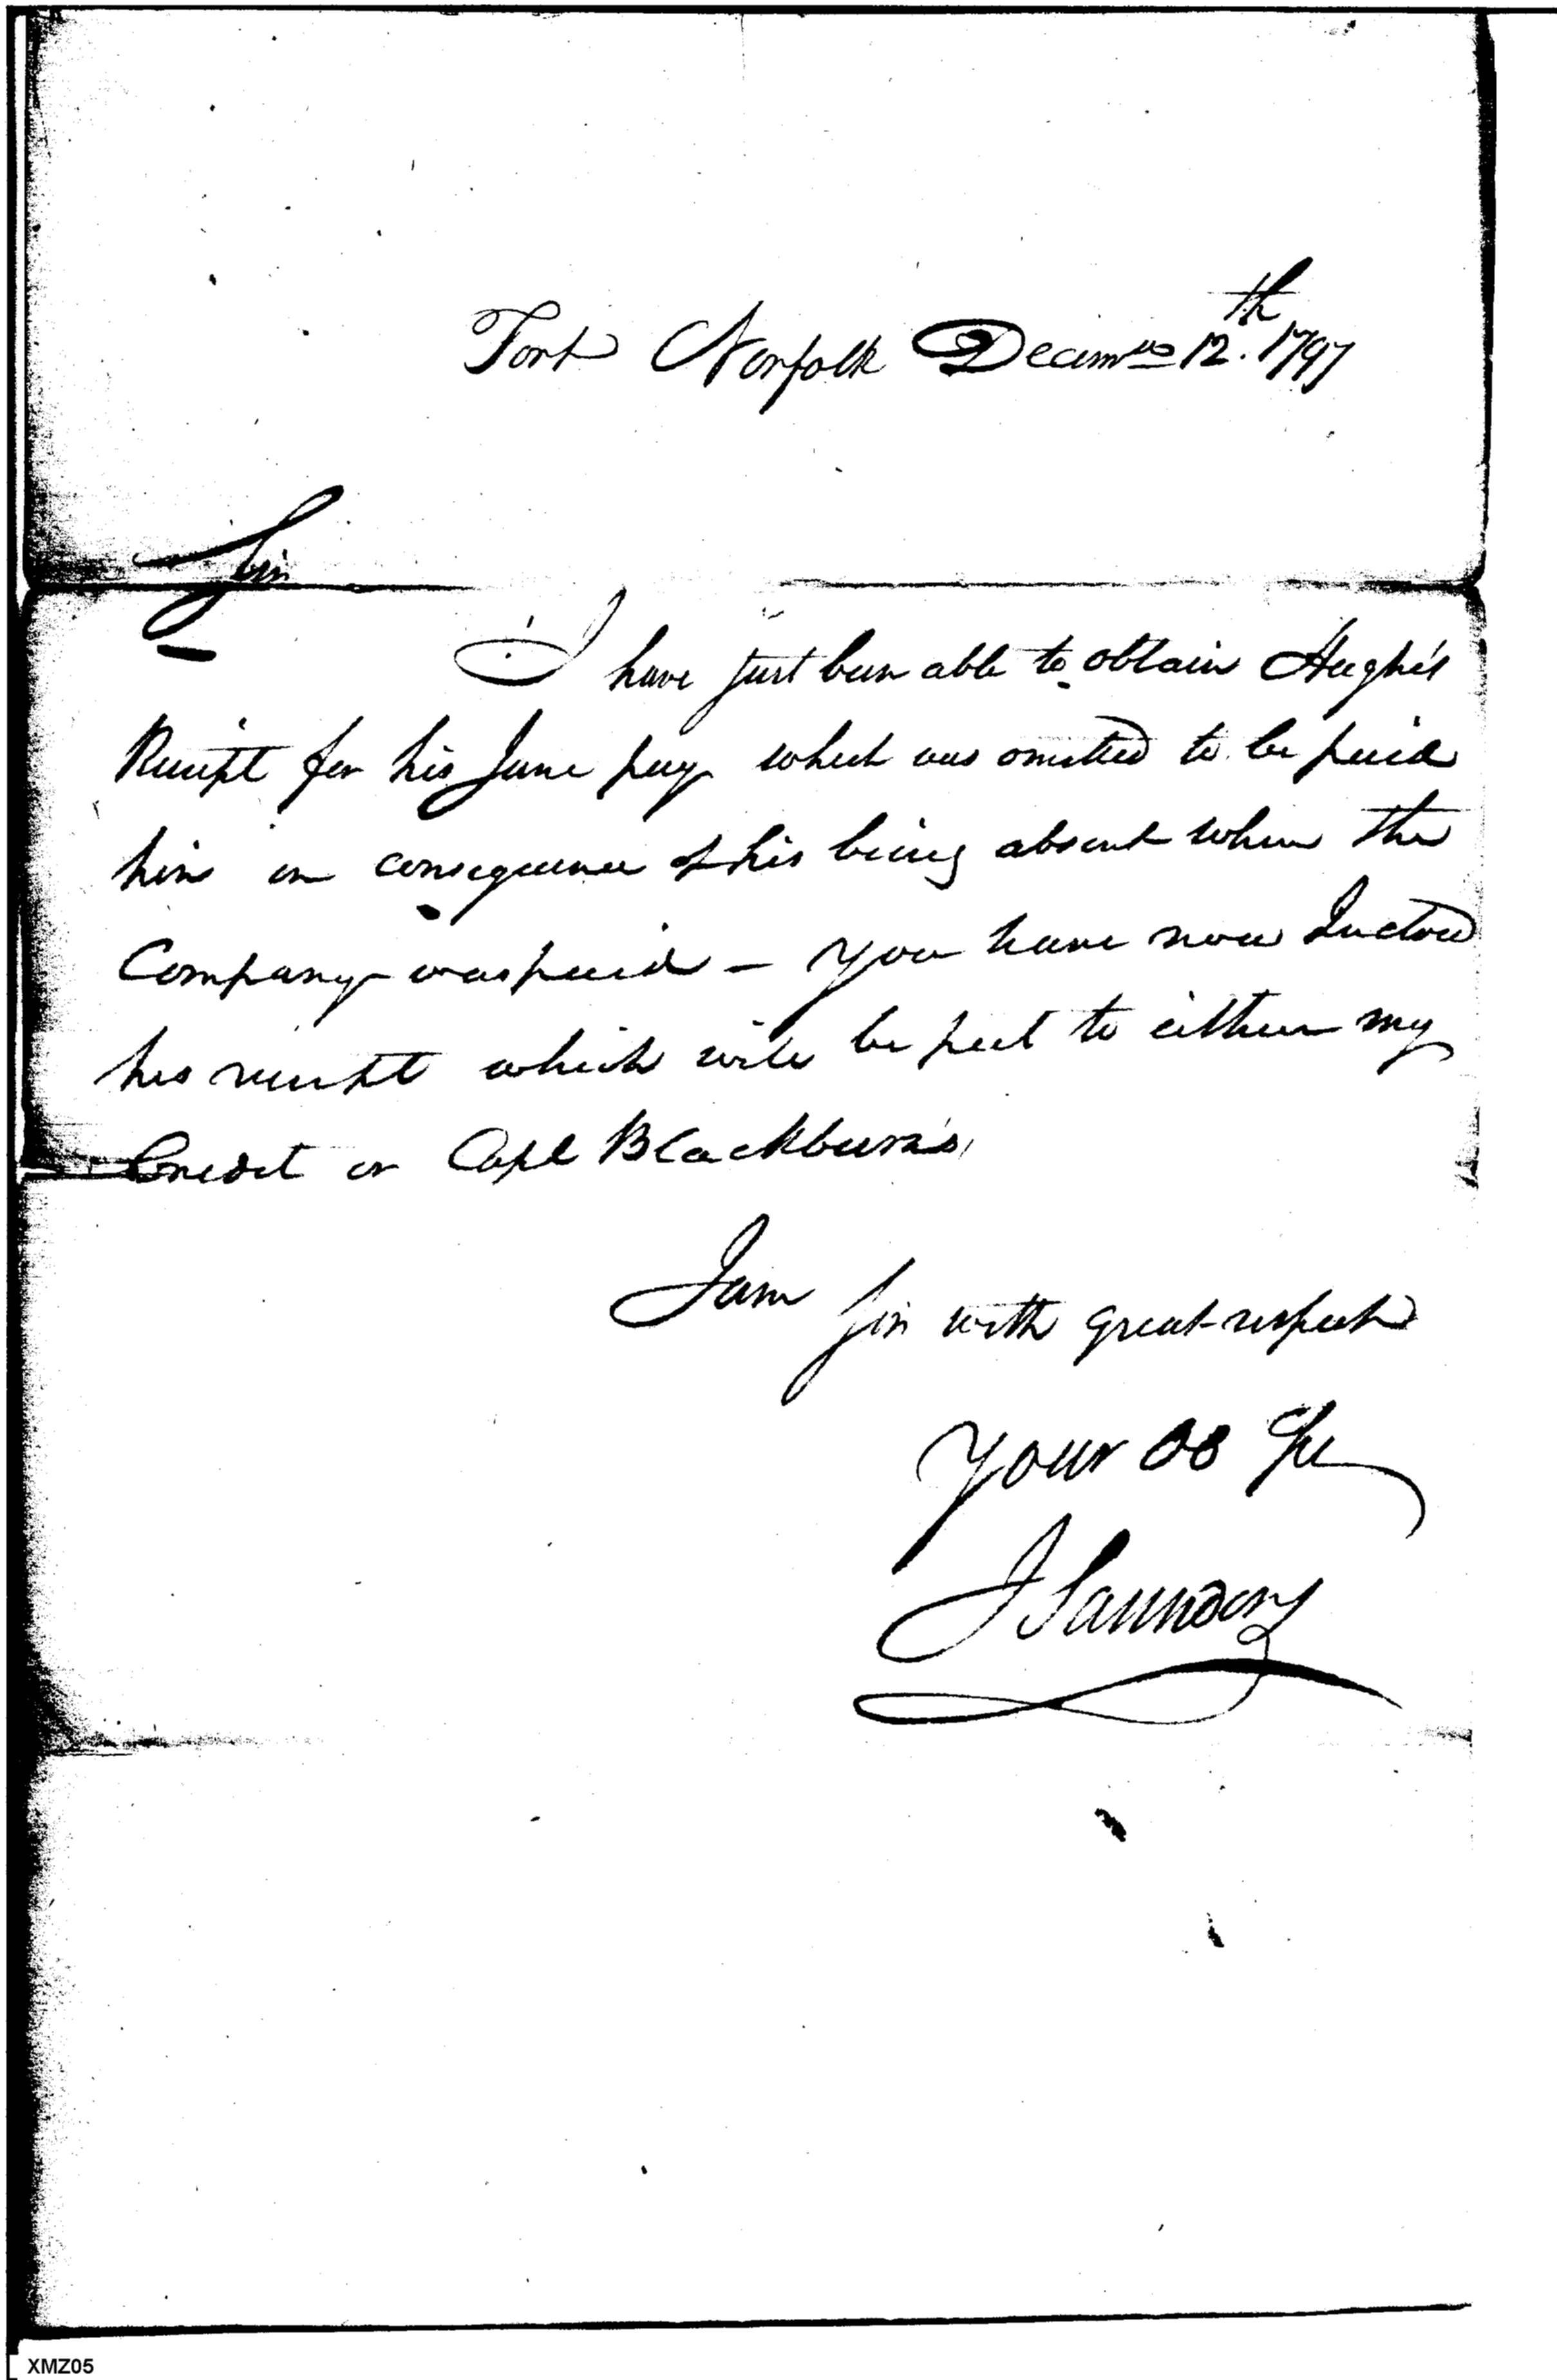 Fort Norfolk Decemr 12th. 1797
Sir
I have just been able to obtain Hughes
Receipt for his June pay which was omitted to be paid
him in consequence of his being absent when the
Company was paid – you have now Inclosed
his receipt which will be put to either my
Credit or Capt Blackburn's
I am Sir with great respect
Your Ob Sr
J Saunders
XMZ05